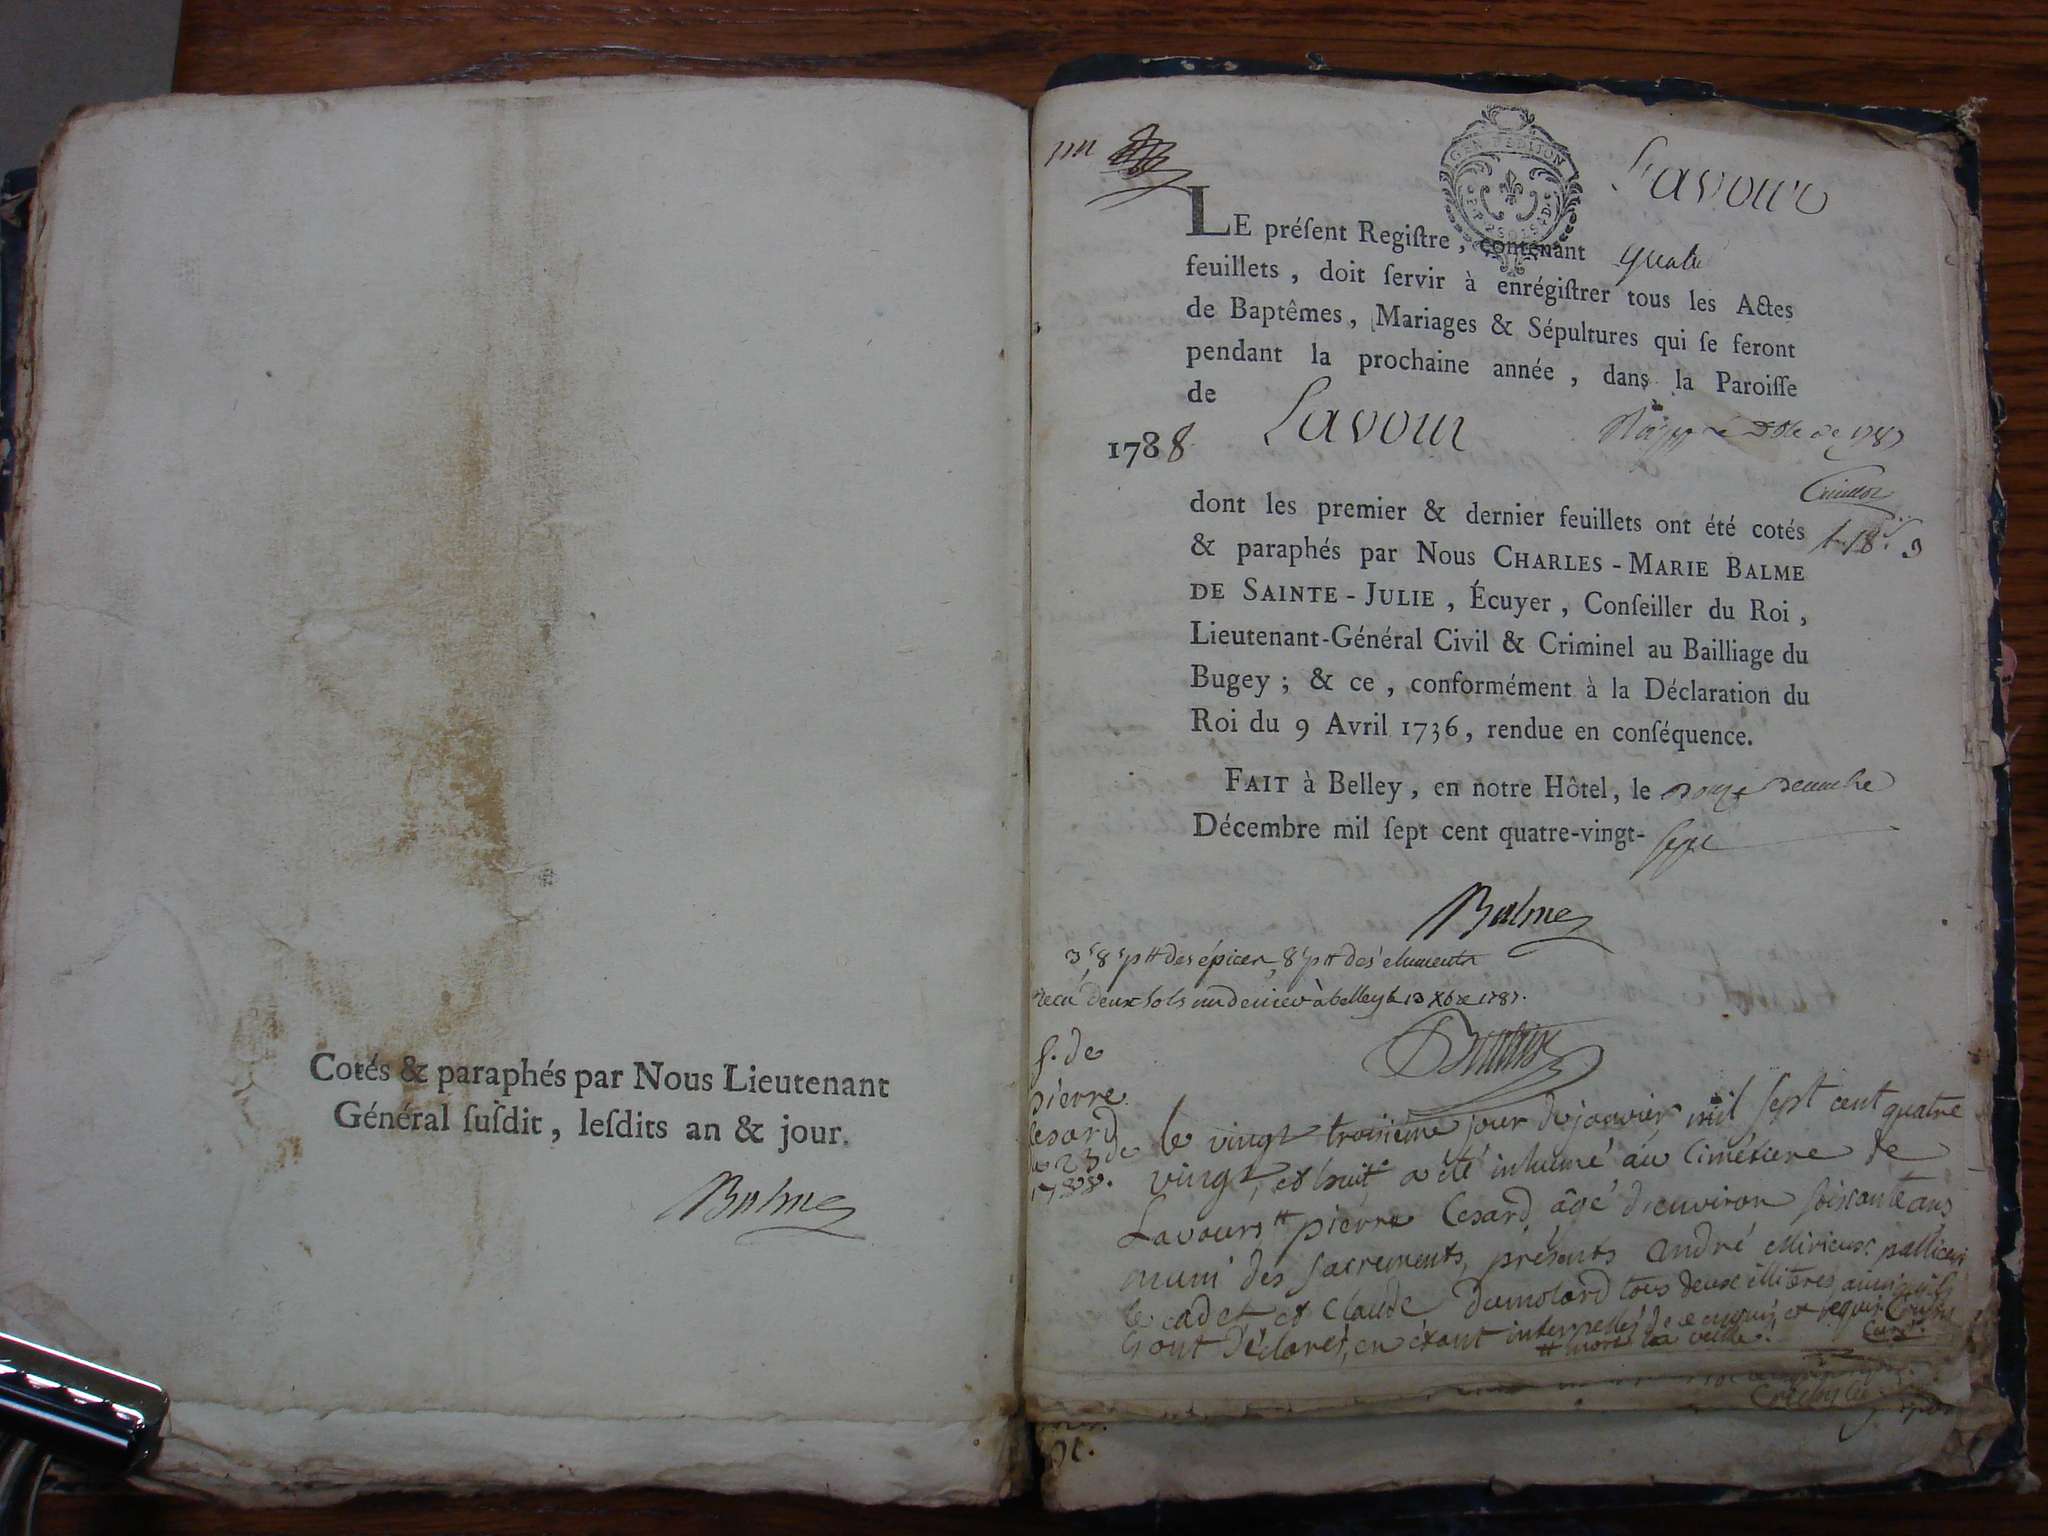 Cotés & paraphés par Nous Lieutenant
Général ſuſdit, leſdits an & jour.
Balme
Lavour
GEN D'EDIJON
LE préſent Regiſtre, contenant quatre
feuillets, doit ſervir à enrégiſtrer tous les Actes
de Baptêmes, Mariages & Sépultures qui ſe feront
pendant la prochaine année, dans la Paroiſſe
de Lavour
1788
dont les premier & dernier feuillets ont été cotés
& paraphés par Nous CHARLES-MARIE BALME
DE SAINTE-JULIE, Écuyer, Conſeiller du Roi,
Lieutenant-Général Civil & Criminel au Bailliage du
Bugey; & ce, conformément à la Déclaration du
Roi du 9 Avril 1736, rendue en conſéquence.
FAIT à Belley, en notre Hôtel, le
Décembre mil ſept cent quatre-vingt-sept
Balme
3 s 8 ptt des épices, 8 ptt des
recu deux sols un denier à belley le 13 Xbre 1787.
S. de
pierre
Cesard
le 23 de
1788.
le vingt troisieme jour de janvier mil sept cent quatre
vingt et huit a été inhumé au Cimétiere de
Lavours # pierre Cesard âgé d'environ soissante ans
muni des sacrements, présents André
le cadet et Claude Dumolard tous deux illiteres, ainsi qu'ils
l'ont Déclarés, en étant interpellés de ce enquis et requis
Curé.
# mort la veille.